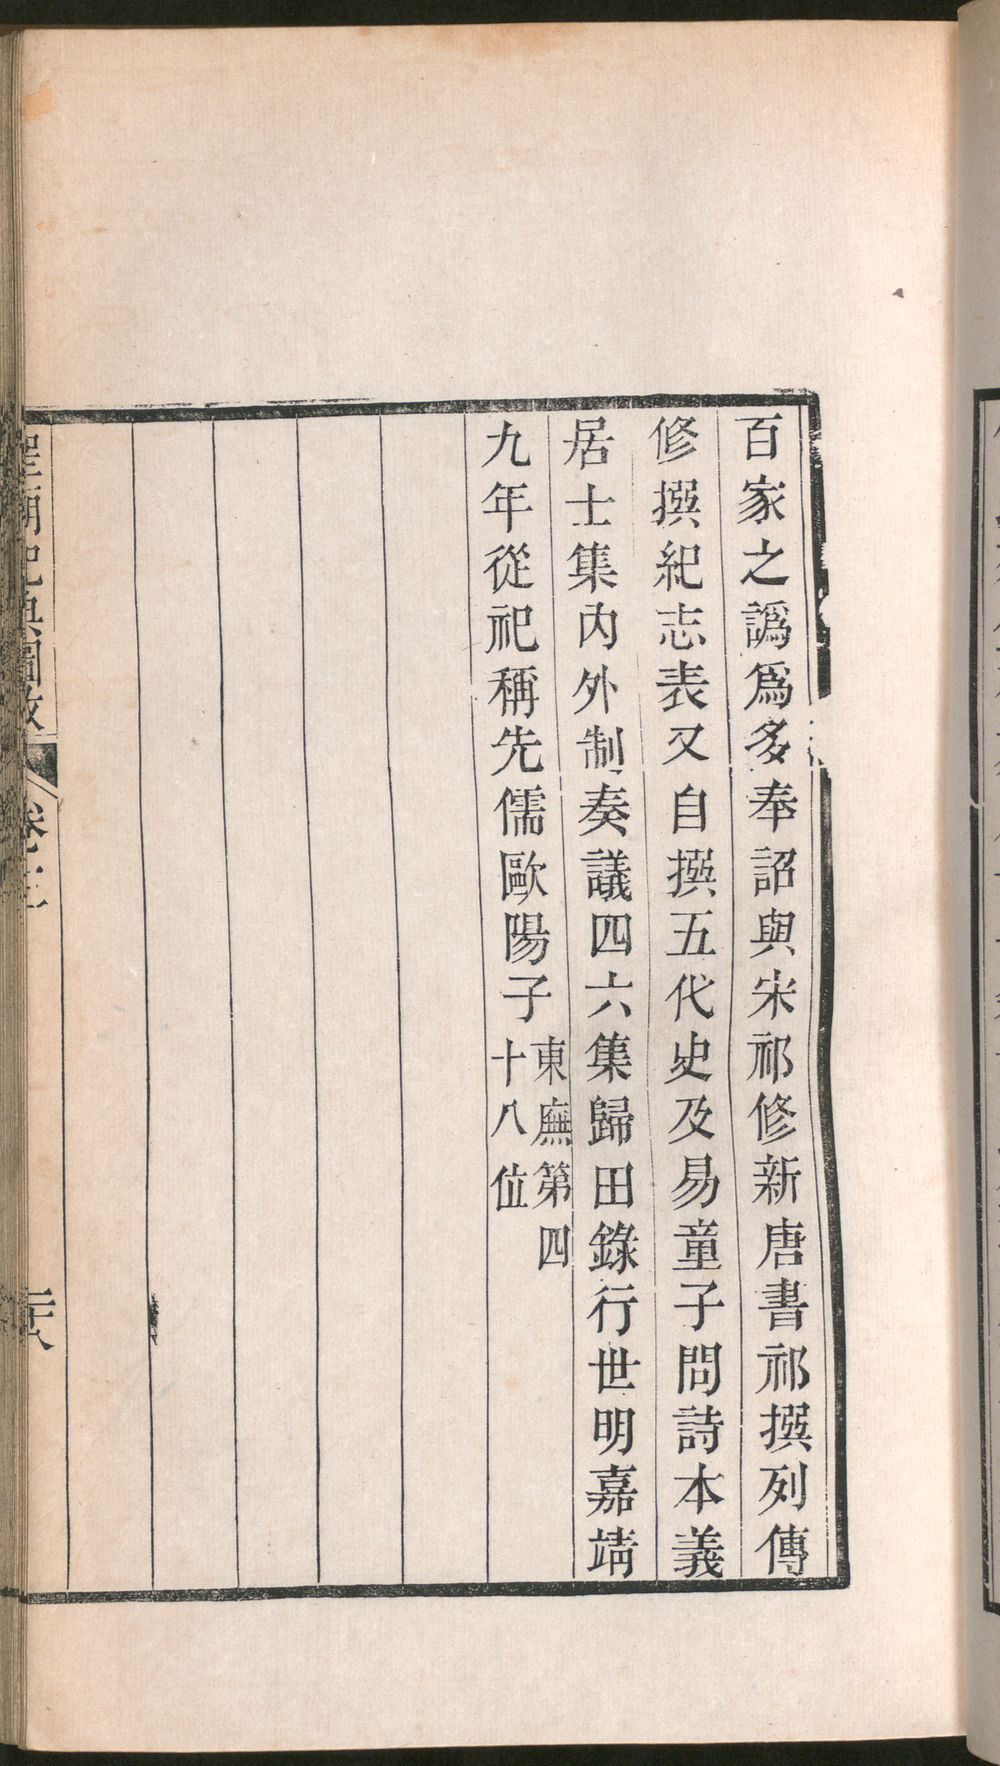 百家之譌爲多奉詔與宋祁修新唐書祁撰列傳
修撰紀志表又自撰五代史及易童子問詩本義
居士集內外制奏議四六集歸田錄行世明嘉靖
九年從祀稱先儒歐陽子
東廡第四
十八位
聖廟祀典圖攷
卷三
二十八